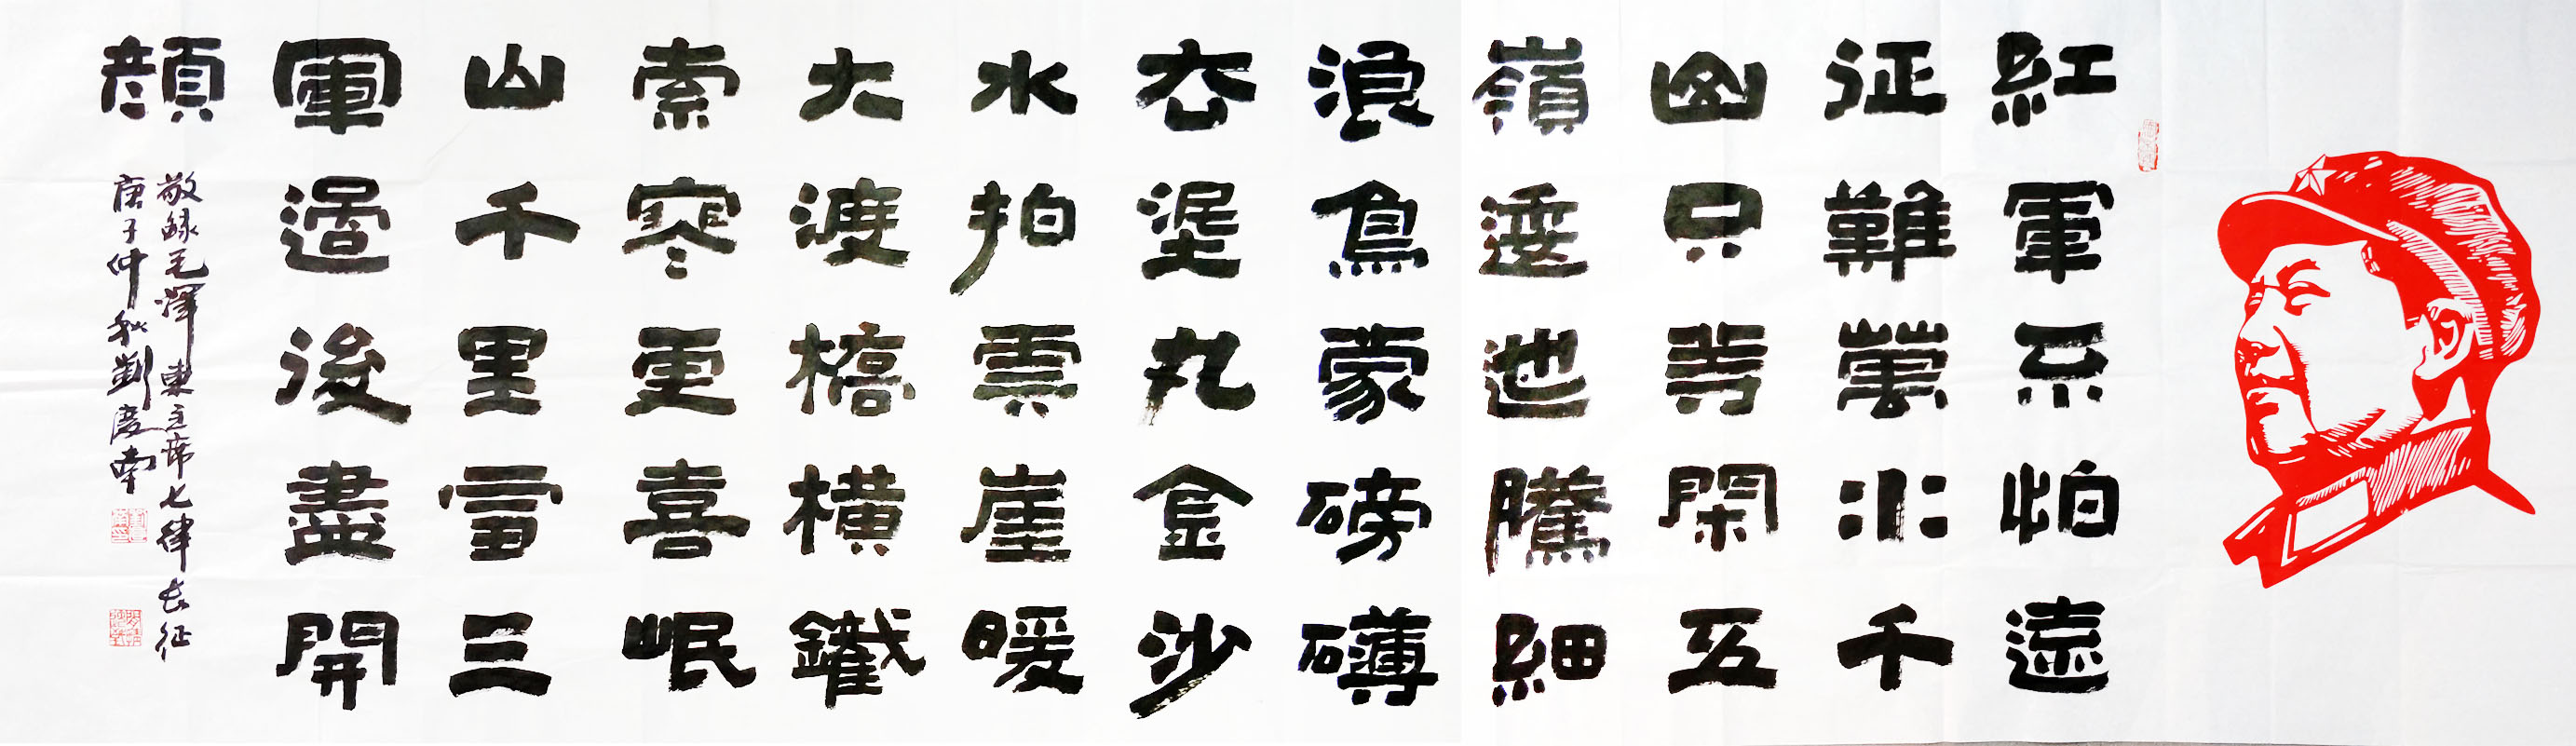 紅軍不怕遠
征難萬水千
山只等閑五
嶺逶迤騰細
浪烏蒙磅礴
走泥丸金沙
水拍雲崖暖
大渡橋橫鐵
索寒更喜岷
山千里雪三
軍過後盡開
顔
敬録毛澤東主席七律長征
庚子仲秋劉慶南